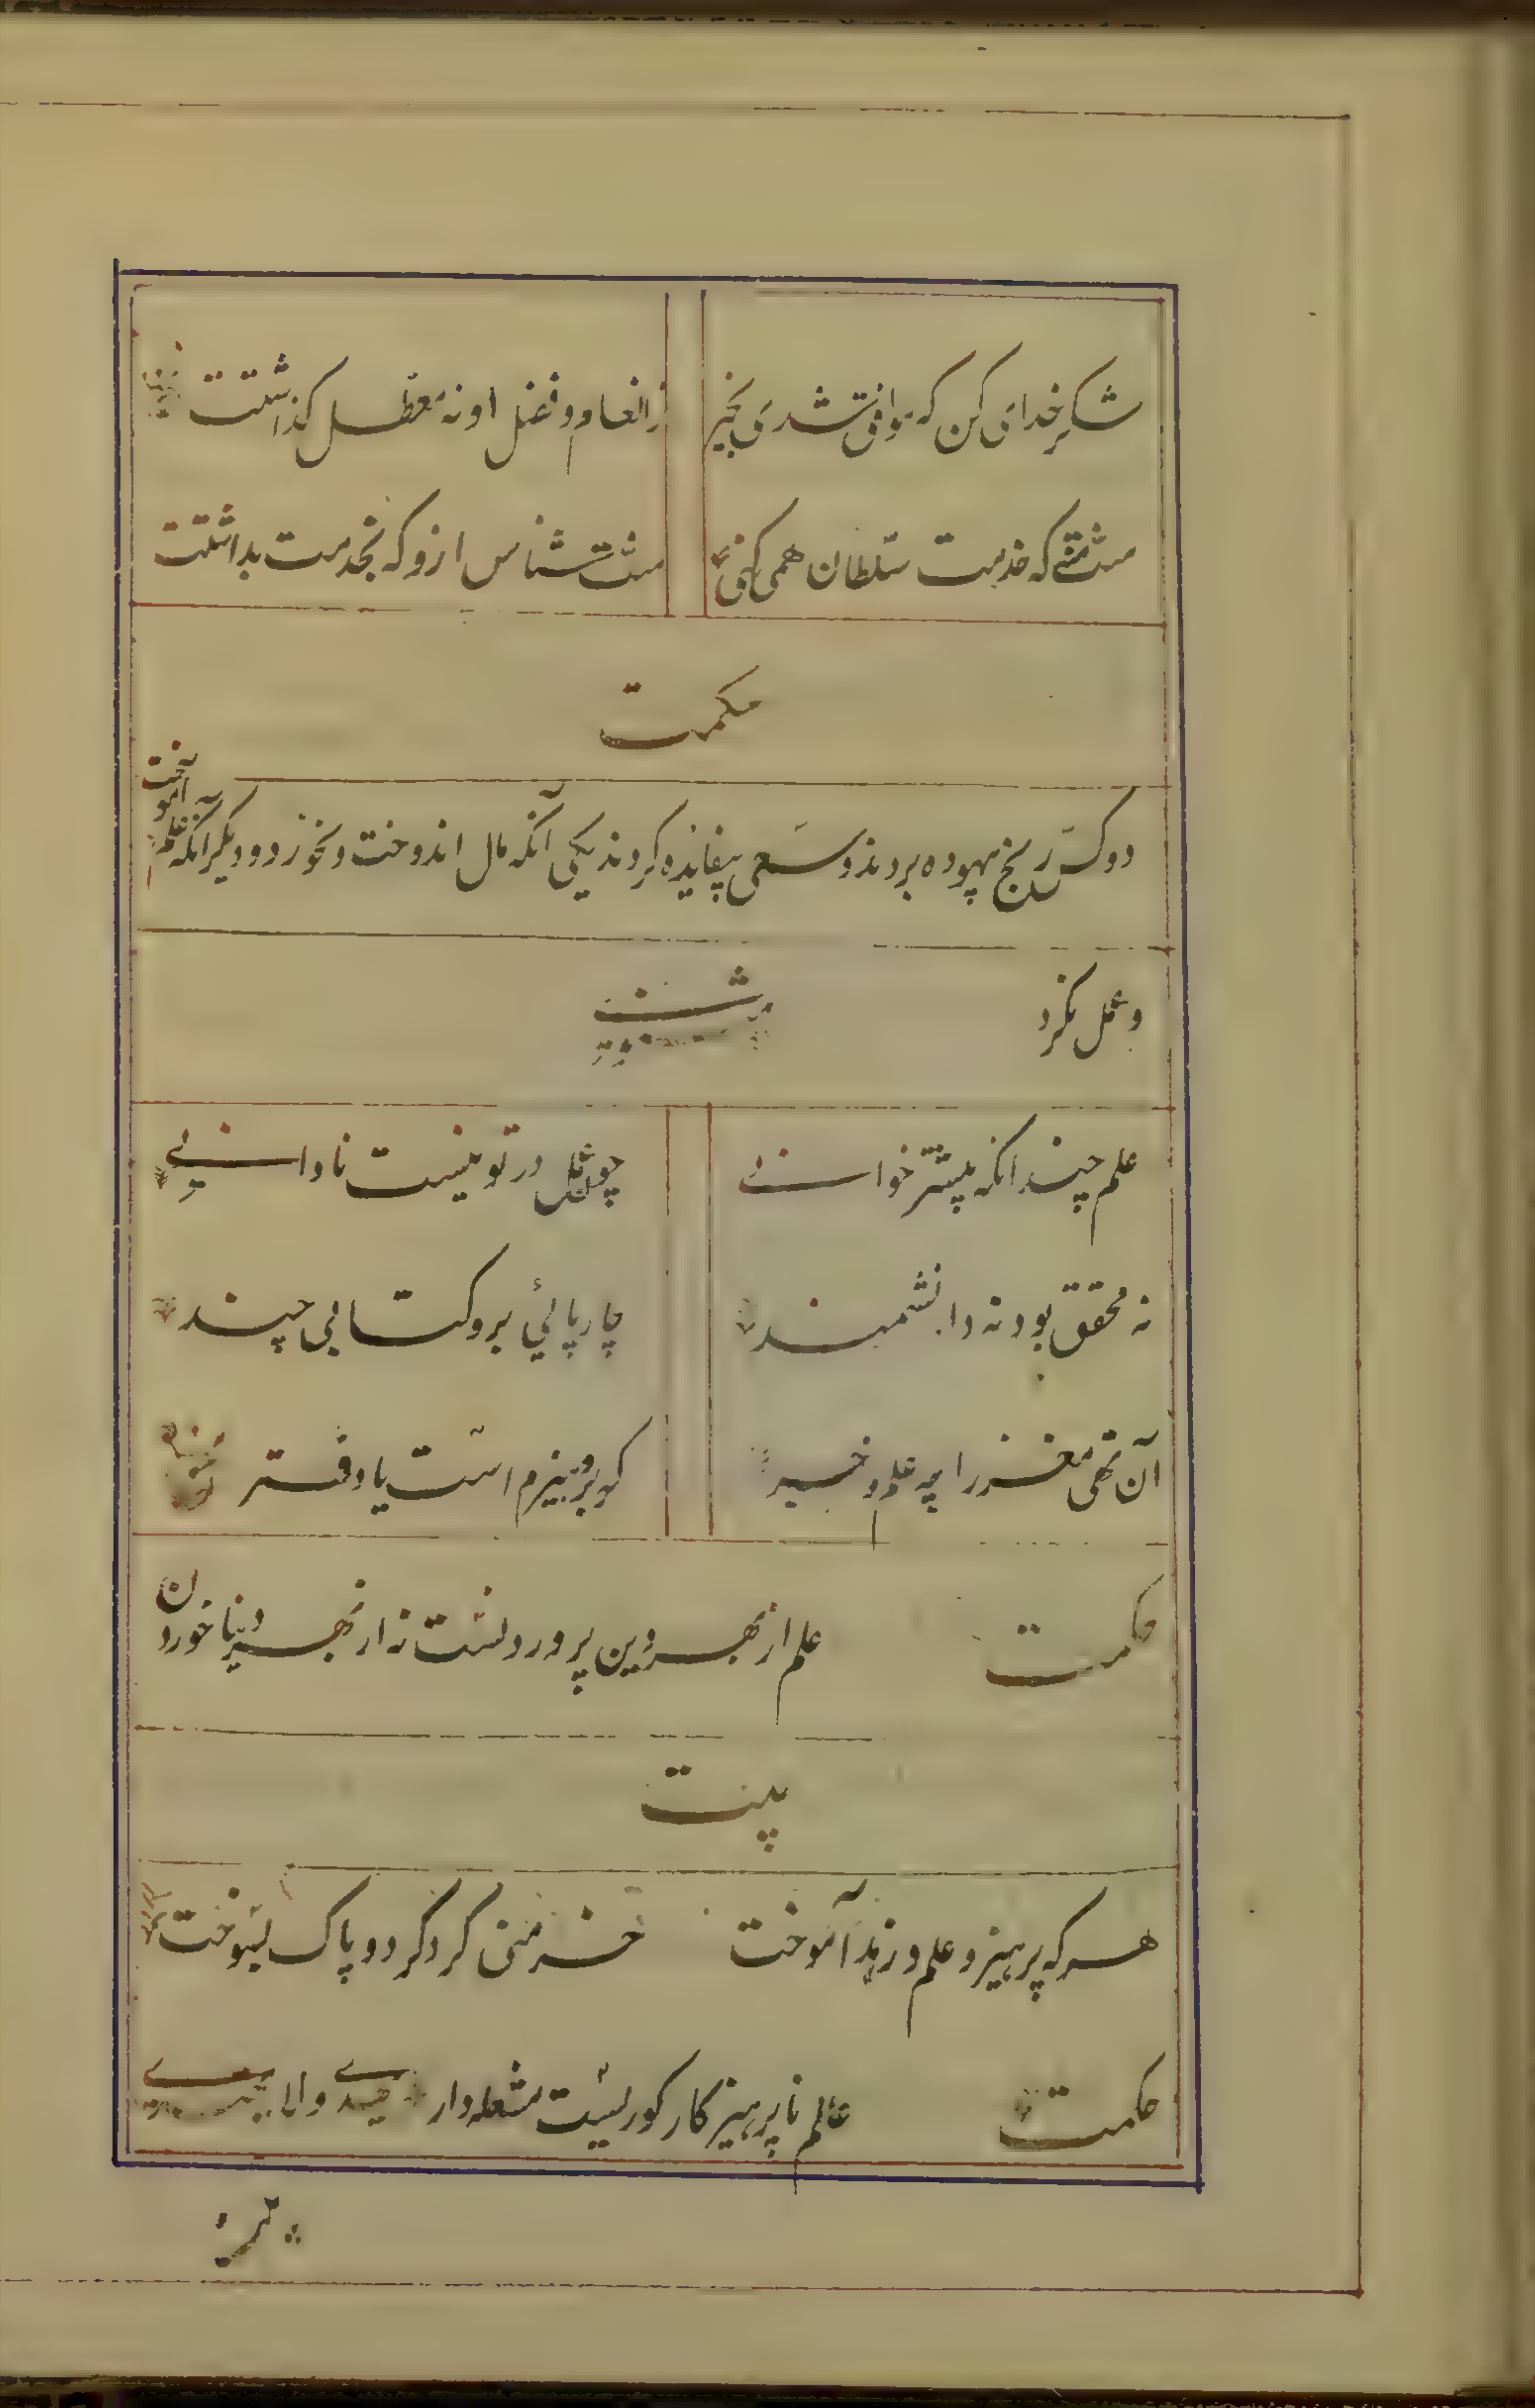 شکر خدای کن که موافق شدی بخیر زانعام و فضل او نه معطل گذاشتت
منت منه که خدمت سلطان همی کنی منت شناس ازو که بخدمت بداشتت
حکمت
دو کس رنج بیهوده بردند و سعی بیفایده کردند یکی آنکه مال اندوخت و نخورد و دیگر آنکه علم آموخت
و عمل نکرد
علم چندانکه بیشتر خوانی چو عمل در تو نیست نادانی
نه محقق بود نه دانشمند چارپائی برو کتابی چند
آن تهی مغز را چه علم و خبر که برو هیزم است یا دفتر
حکمت علم از بهر دین پروردنست نه از بهر دنیا خوردن
بیت
هر که پرهیز و علم و زهد آموخت خرمنی گرد کرد و پاک بسوخت
حکمت عالم ناپرهیزکار کوریست مشعله دار